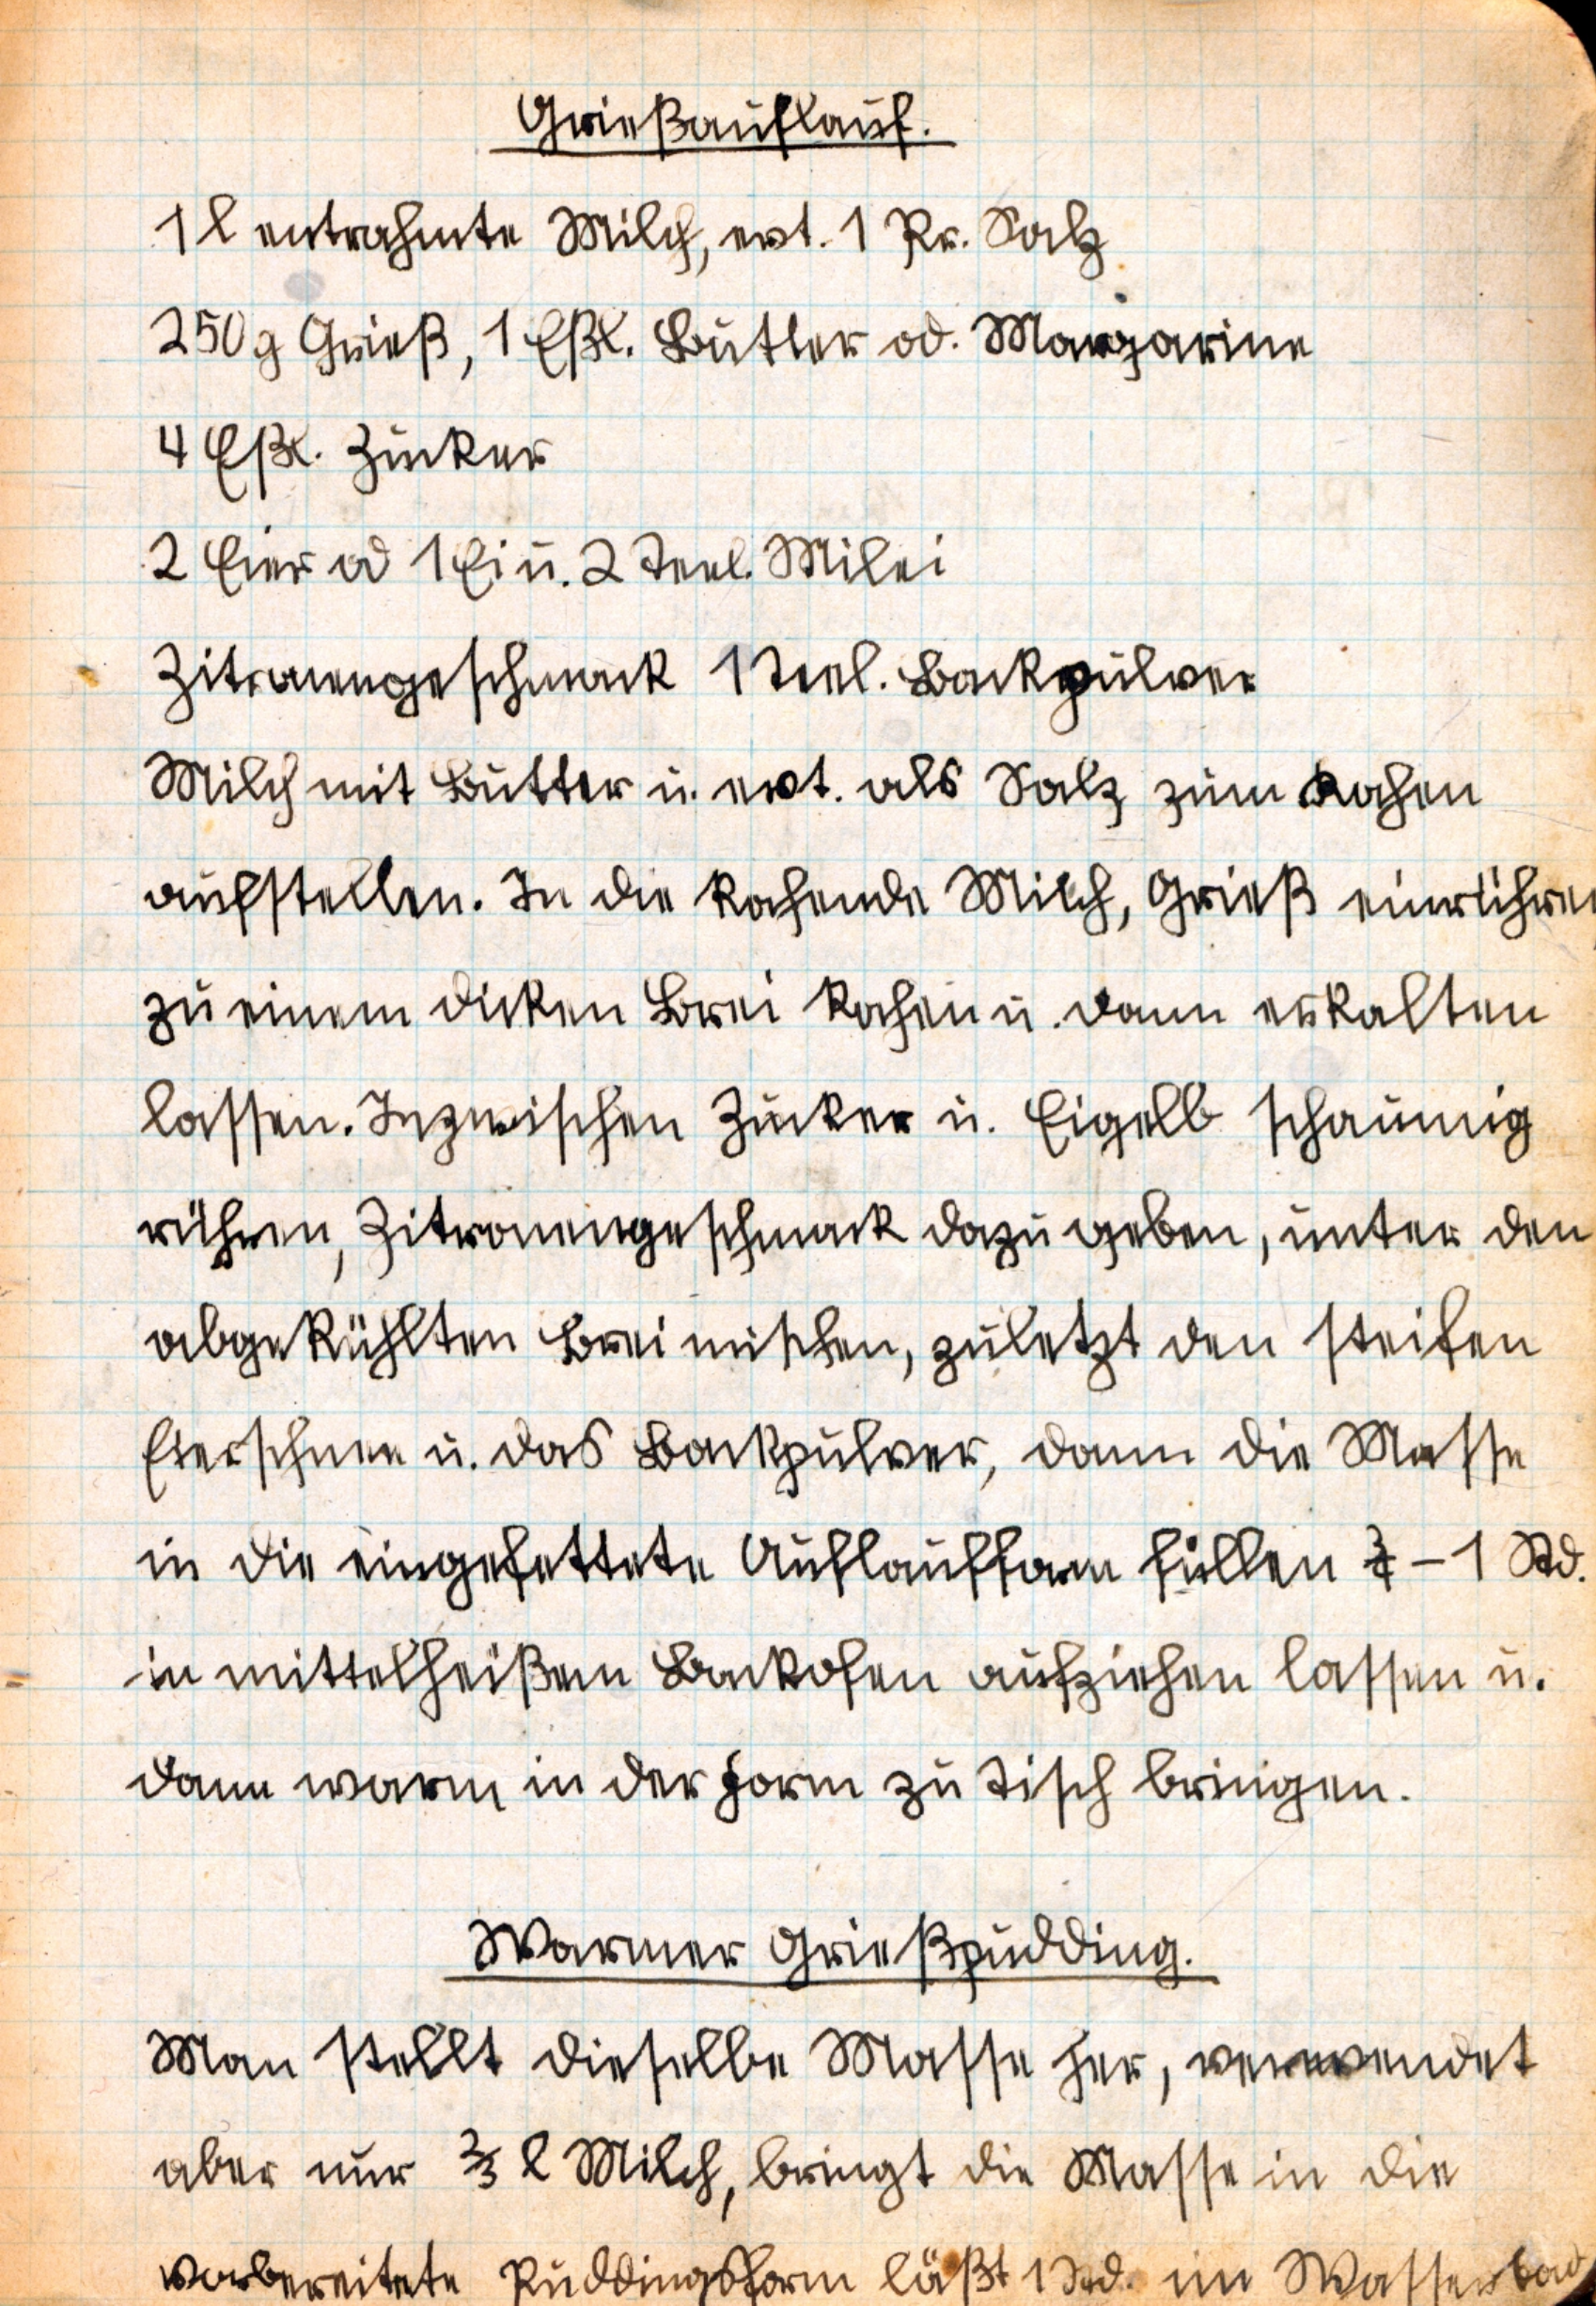 Grießauflauf.
1 l entrahmte Milch, evt. 1 Pr. Salz
250 g Grieß, 1 Eßl. Butter od. Margarine
4 Eßl. Zucker
2 Eier od 1 Ei u. 2 Teel. Milei
Zitronengeschmack 1 Teel. Backpulver
Milch mit Butter u. evt. als Salz zum Kochen
aufstellen. In die kochende Milch, Grieß einrühren
zu einem dicken Brei kochen u. dann erkalten
lassen. Inzwischen Zucker u. Eigelb schaumig
rühren, Zitronengeschmack dazu geben, unter den
abgekühlten Brei mischen, zuletzt den steifen
Eierschnee u. das Backpulver, dann die Masse
in die eingefettete Auflaufform füllen ¾ – 1 Std.
in mittelheißem Backofen aufziehen lassen u.
dann warm in der Form zu Tisch bringen.
Warmer Grießpudding.
Man stellt dieselbe Masse her, verwendet
aber nur ⅔ l Milch, bringt die Masse in die
vorbereitete Puddingsform läßt 1 Std. im Wasserbad